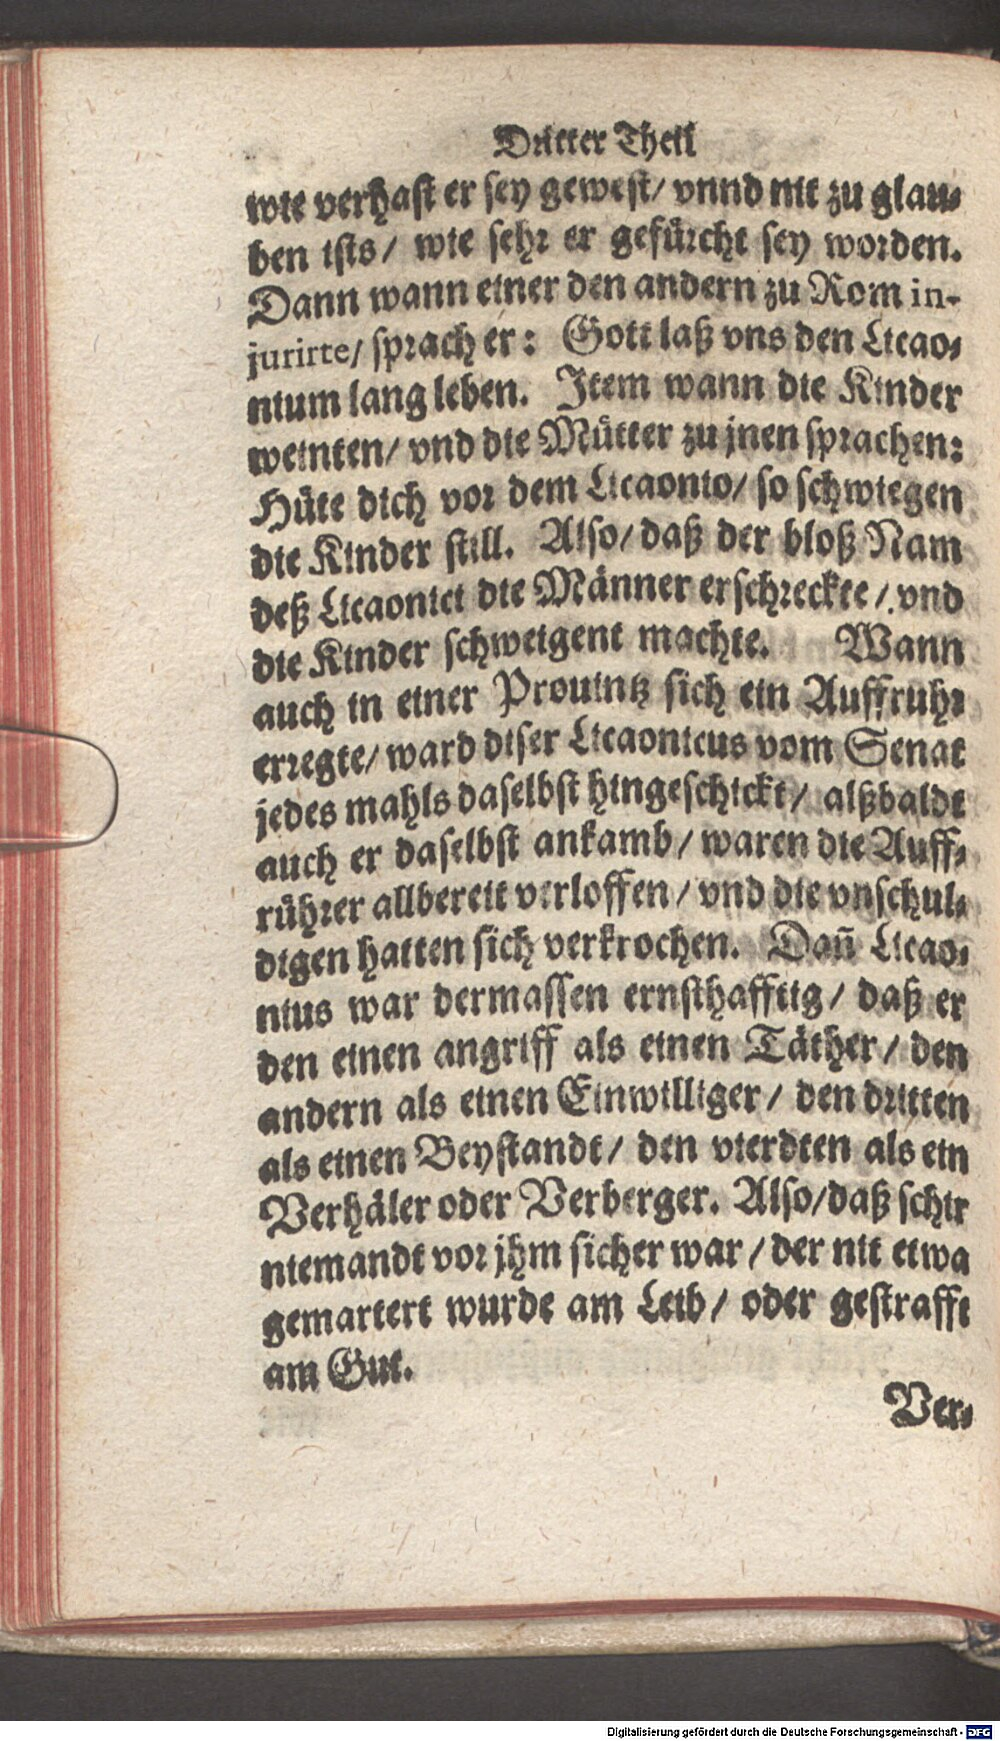 Dritter Theil
wie verhast er sey gewest/ vnnd nit zu glau-
ben ists/ wie sehr er gefürcht sey worden.
Dann wann einer den andern zu Rom in-
jurirte/ sprach er: Gott laß vns den Licao-
nium lang leben. Item wann die Kinder
weinten/ vnd die Mütter zu jnen sprachen:
Hüte dich vor dem Licaonio/ so schwiegen
die Kinder still. Also/ daß der bloß Nam
deß Licaonici die Männer erschreckte/ vnd
die Kinder schweigent machte. Wann
auch in einer Prouintz sich ein Auffruhr
erregte/ ward diser Licaonicus vom Senat
jedes mahls daselbst hingeschickt/ alßbaldt
auch er daselbst ankamb/ waren die Auff-
rührer allbereit verloffen/ vnd die vnschul-
digen hatten sich verkrochen. Dañ Licao-
nius war dermassen ernsthafftig/ daß er
den einen angriff als einen Täther/ den
andern als einen Einwilliger/ den dritten
als einen Beystandt/ den vierdten als ein
Verhäler oder Verberger. Also/ daß schir
niemandt vor jhm sicher war/ der nit etwa
gemartert wurde am Leib/ oder gestrafft
am Gut.
Ver-
Digitalisierung gefördert durch die Deutsche Forschungsgemeinschaft - DFG